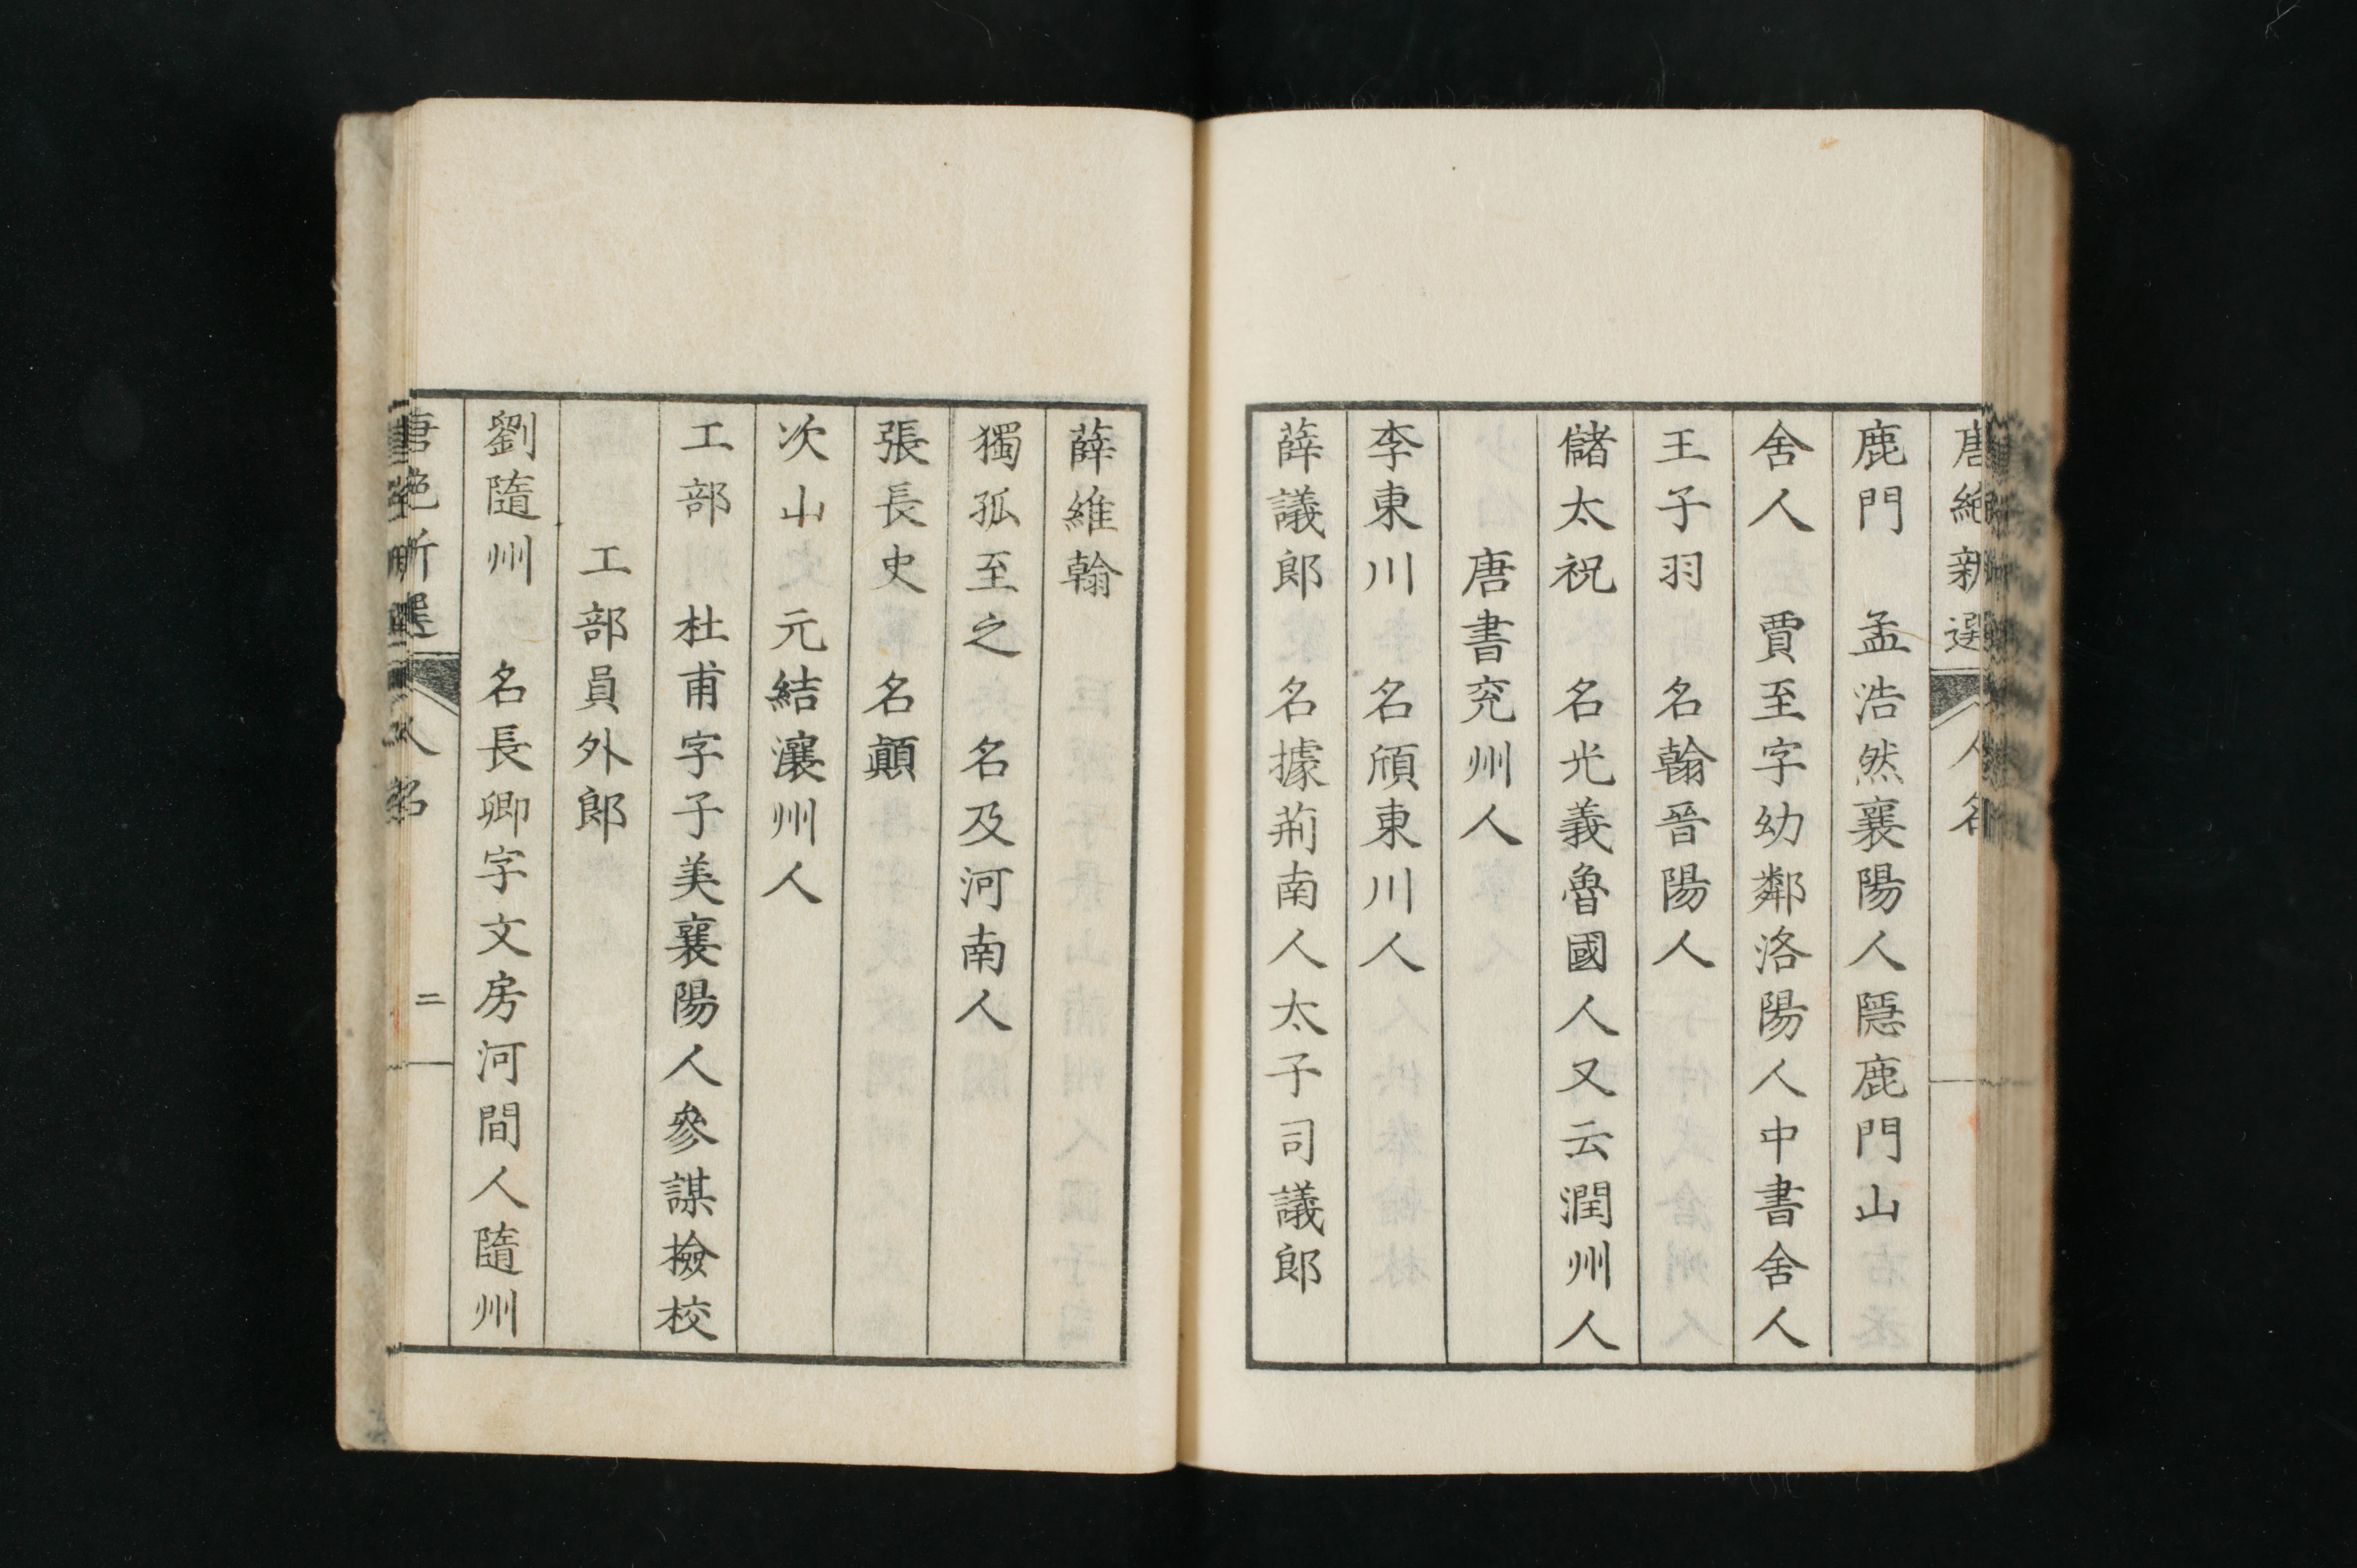 唐絶新選 人名
鹿門 孟浩然襄陽人隱鹿門山
舍人 賈至字幼鄰洛陽人中書舍人
王子羽 名翰晉陽人
儲太祝 名光義魯國人又云潤州人
唐書兖州人
李東川 名頎東川人
薛議郎 名據荊南人太子司議郎
薛維翰
獨孤至之 名及河南人
張長史 名顚
次山 元結瀼州人
工部 杜甫字子美襄陽人參謀撿校
工部員外郎
劉隨州 名長卿字文房河間人隨州
唐絶新選 人名 二